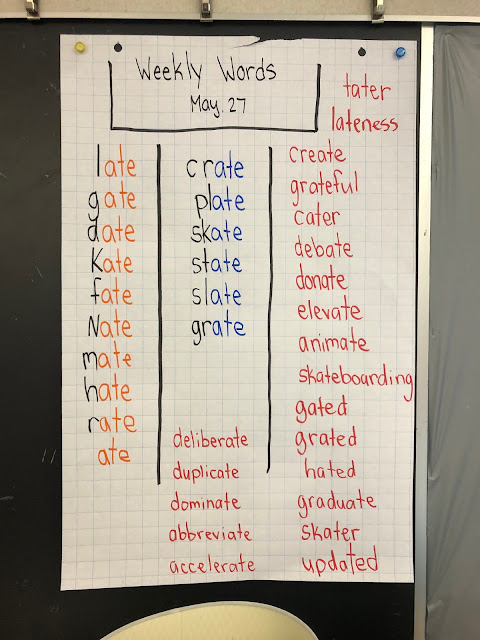 Weekly Words
May. 27
late
gate
date
Kate
fate
Nate
mate
hate
rate
ate
crate
plate
skate
state
slate
grate
deliberate
duplicate
dominate
abbreviate
accelerate
tater
lateness
create
grateful
cater
debate
donate
elevate
animate
skateboarding
gated
grated
hated
graduate
skater
updated